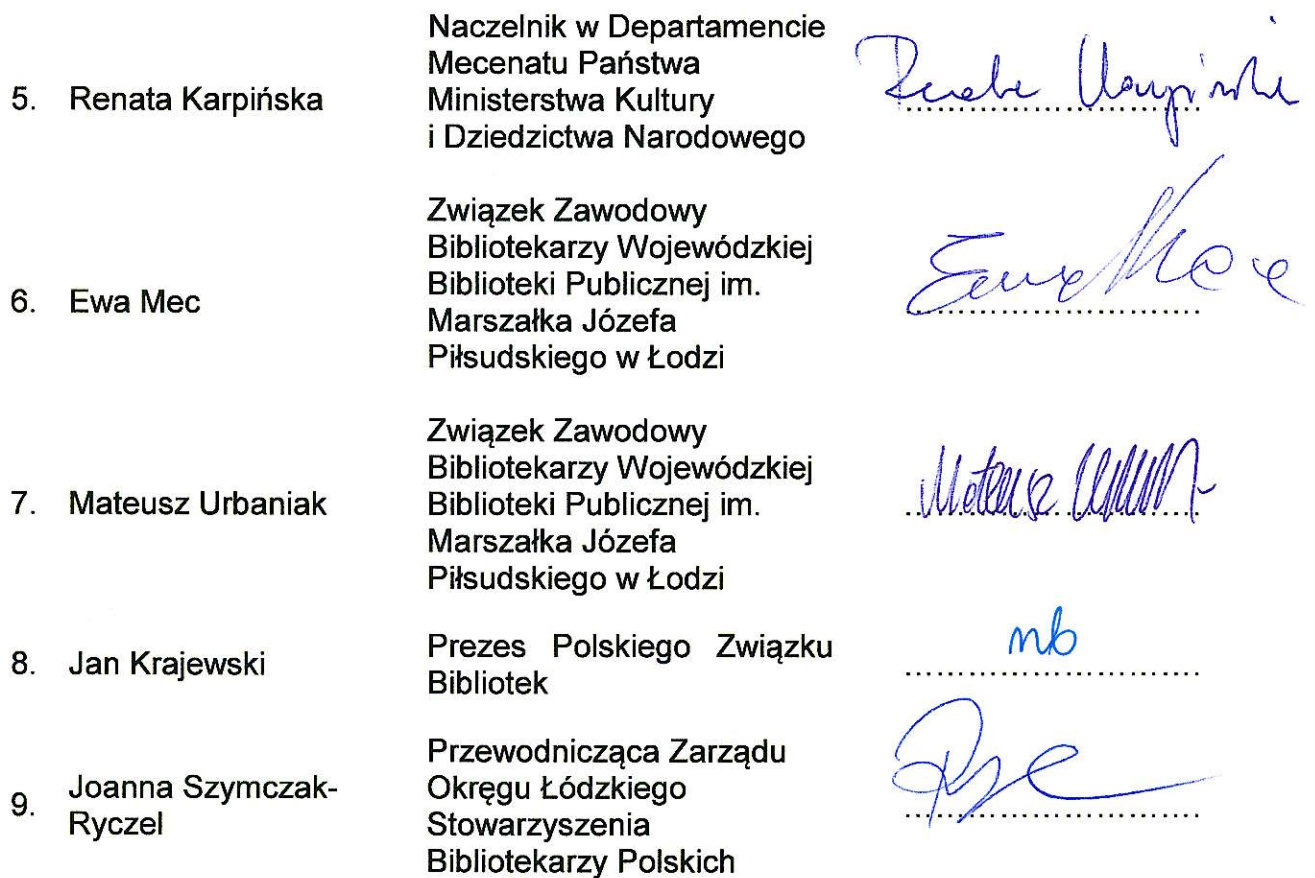 5. Renata Karpińska
Naczelnik w Departamencie
Mecenatu Państwa
Ministerstwa Kultury
i Dziedzictwa Narodowego
Renata Karpińska
6. Ewa Mec
Związek Zawodowy
Bibliotekarzy Wojewódzkiej
Biblioteki Publicznej im.
Marszałka Józefa
Piłsudskiego w Łodzi
Ewa Mec
7. Mateusz Urbaniak
Związek Zawodowy
Bibliotekarzy Wojewódzkiej
Biblioteki Publicznej im.
Marszałka Józefa
Piłsudskiego w Łodzi
Mateusz
8. Jan Krajewski
Prezes Polskiego Związku
Bibliotek
nb
9. Joanna Szymczak-
Ryczel
Przewodnicząca Zarządu
Okręgu Łódzkiego
Stowarzyszenia
Bibliotekarzy Polskich